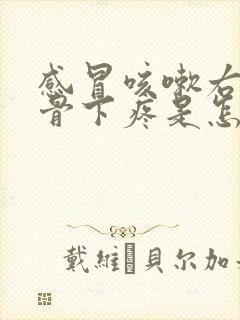 感冒咳嗽右
骨下疼是怎
戴維 貝尔加